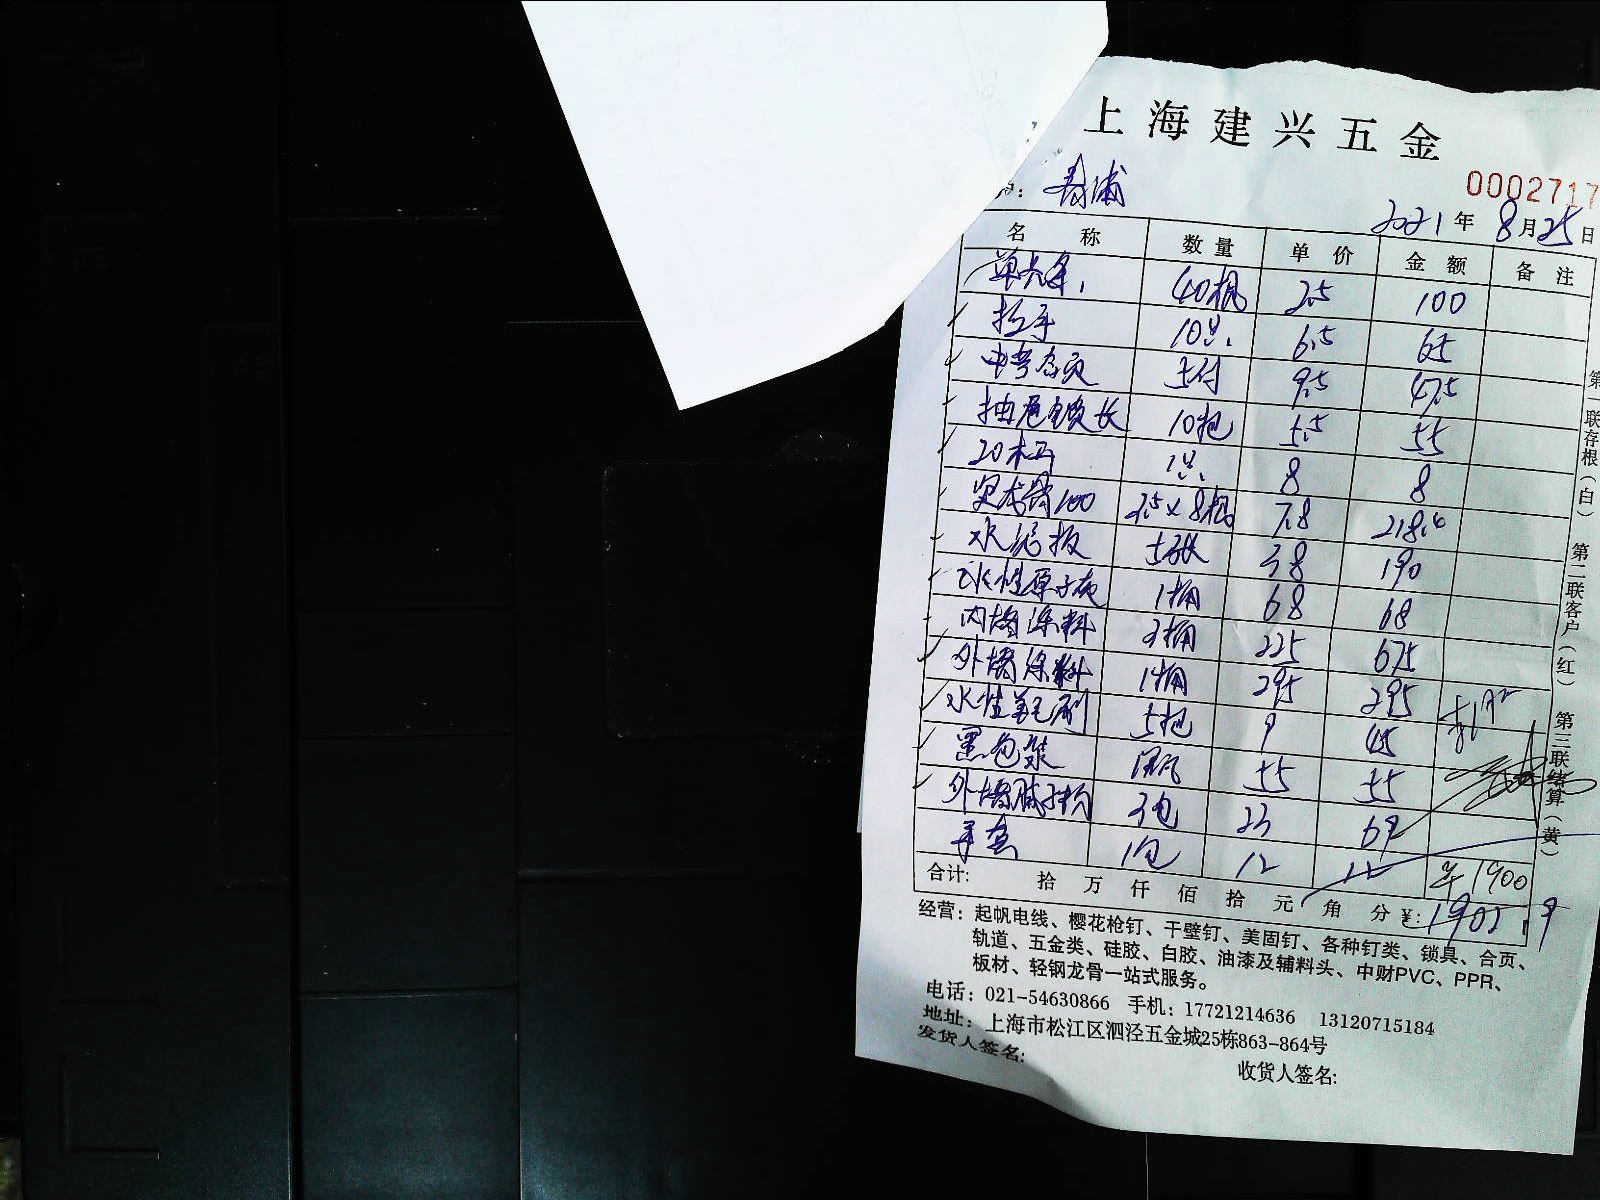 上海建兴五金
0002717
2021年8月25日
名称 数量 单价 金额 备注
40根 2.5 100
拉手 10只 6.5 65
5付 9.5 47.5
抽屉锁长 10把 5.5 55
20木工 1只 8 8
竖龙骨100 3.5×8根 7.8 218.4
水泥板 5张 38 190
水性原子灰 1桶 68 68
内墙涂料 3桶 225 675
外墙涂料 1桶 295 295
水性羊毛刷 5把 9 45
黑色浆 55 55
外墙腻子粉 3包 23 69
手套 1包 12 12
¥1900
合计: 拾万仟佰拾元角分 ¥:1902.9
经营：起帆电线、樱花枪钉、干壁钉、美固钉、各种钉类、锁具、合页、
轨道、五金类、硅胶、白胶、油漆及辅料头、中财PVC、PPR、
板材、轻钢龙骨一站式服务。
电话：021-54630866 手机：17721214636 13120715184
地址：上海市松江区泗泾五金城25栋863-864号
发货人签名: 收货人签名:
第一联存根(白) 第二联客户(红) 第三联结算(黄)